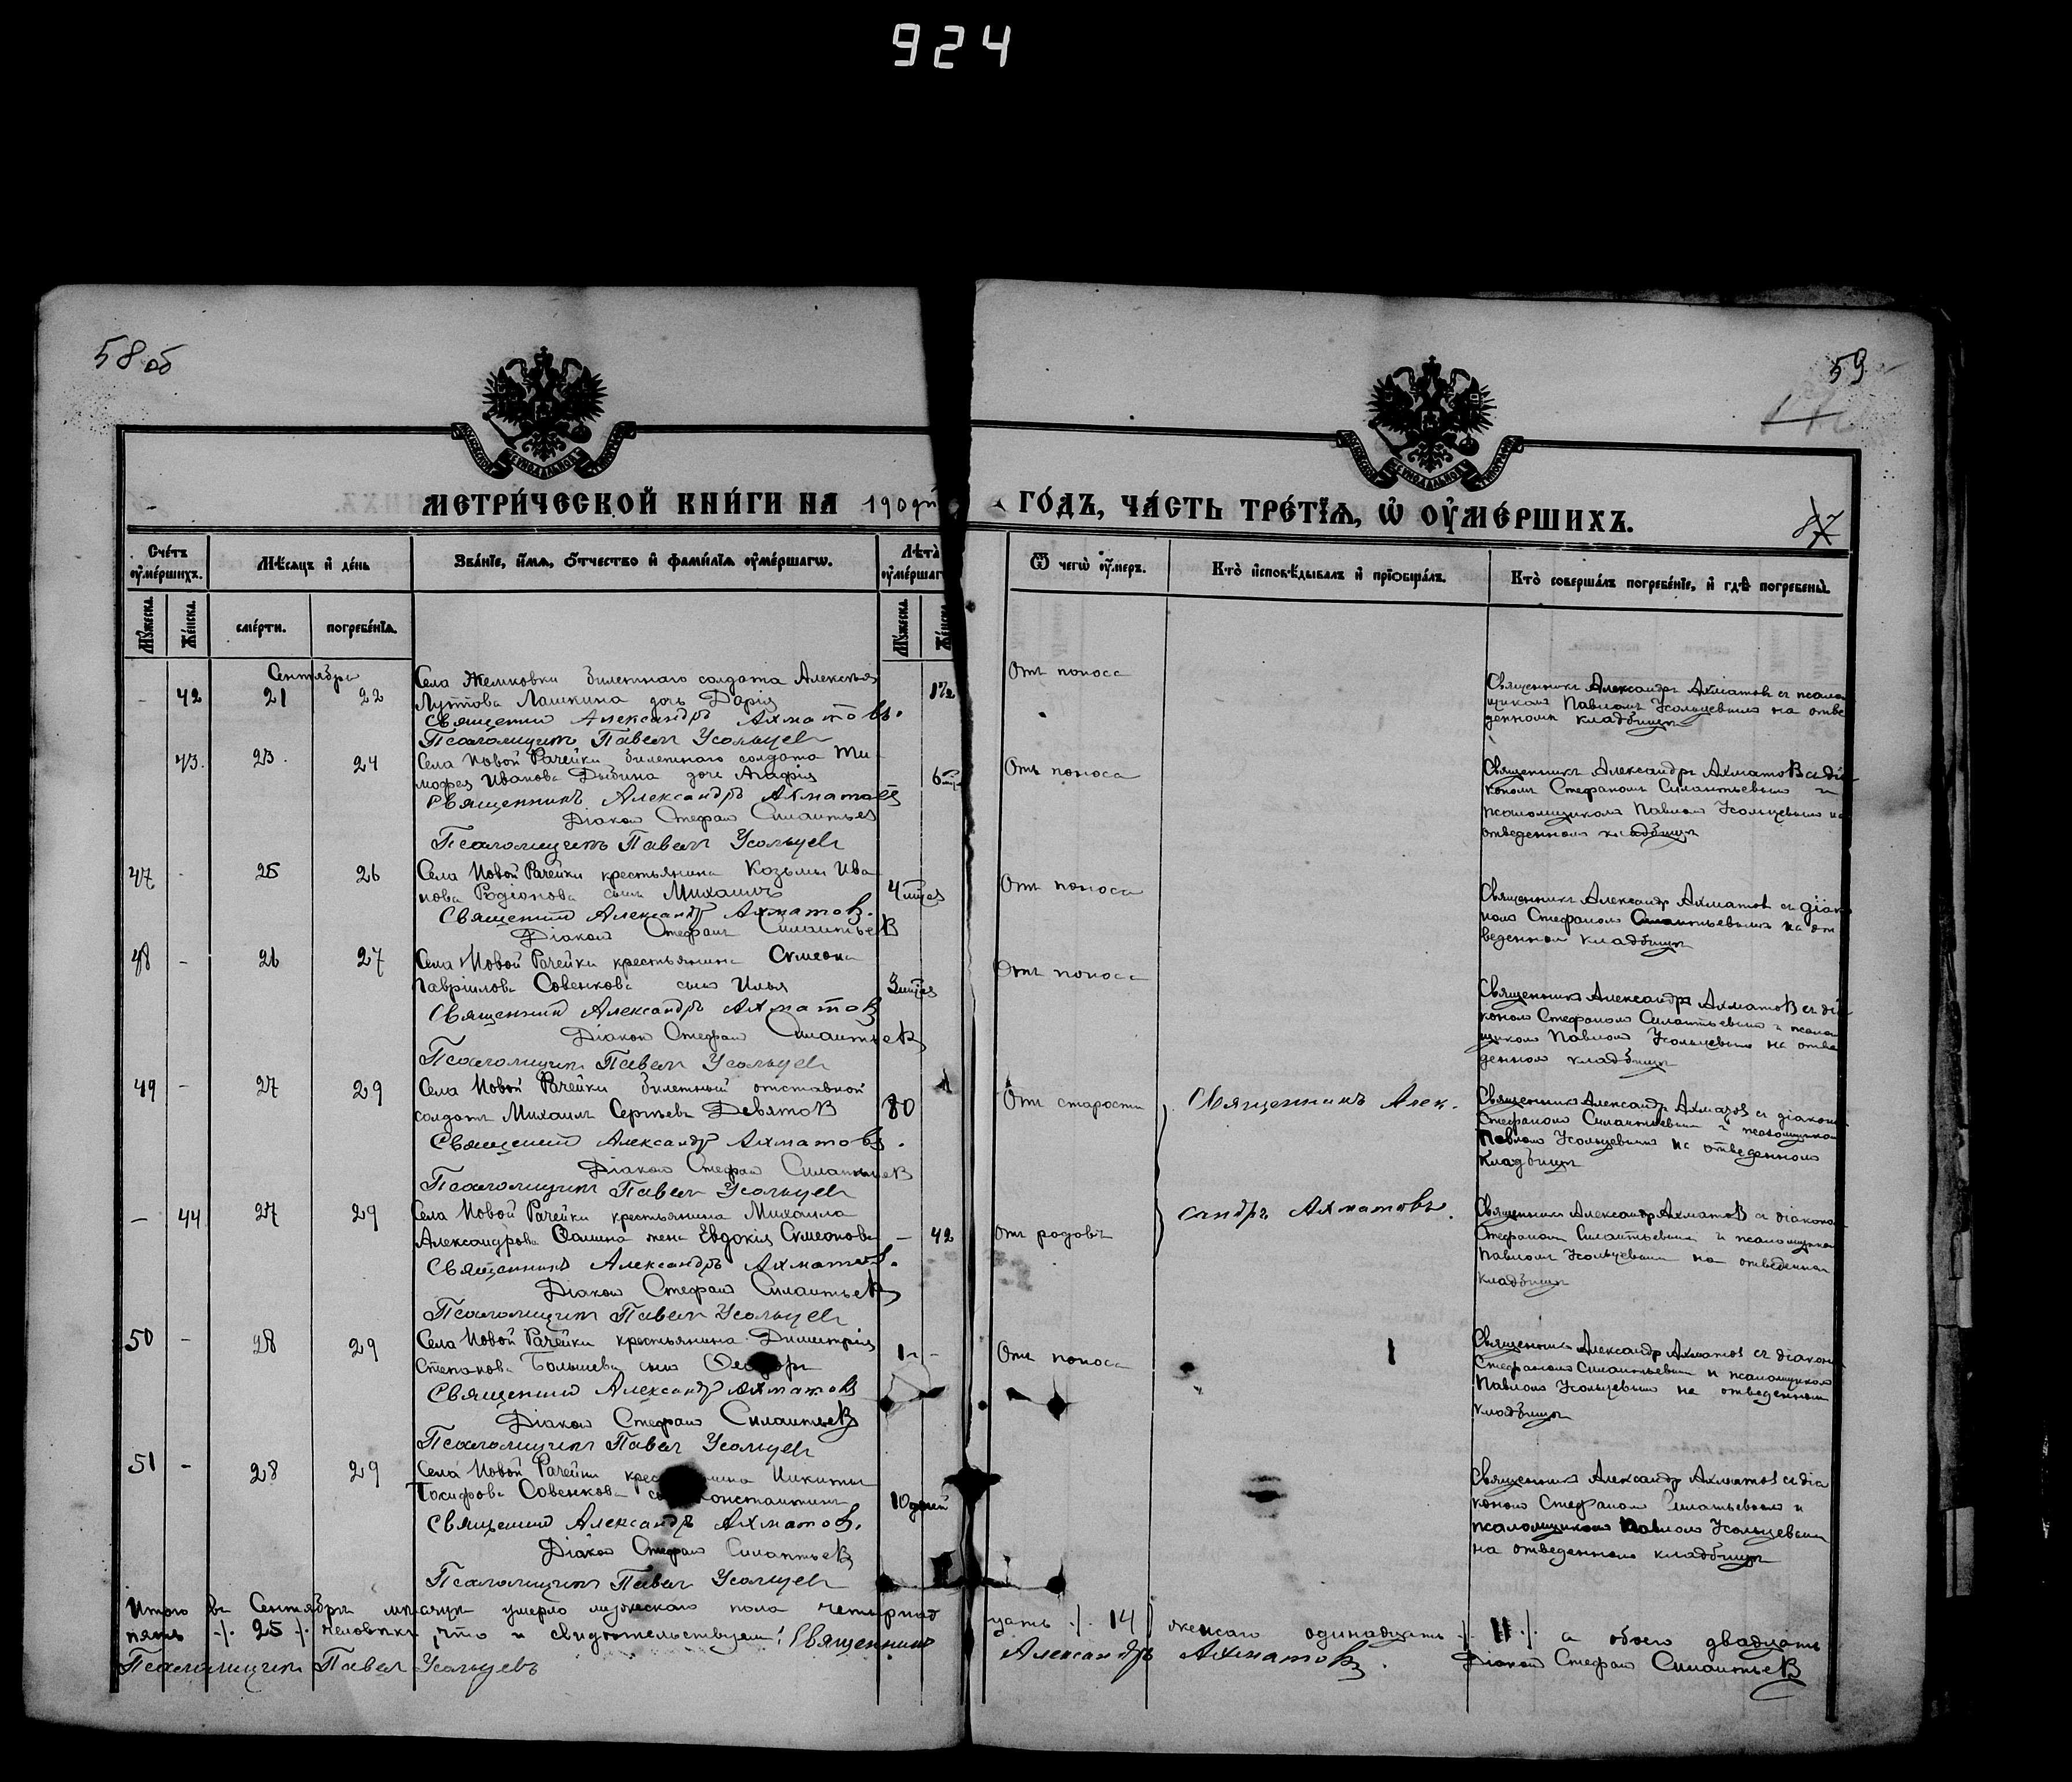 924
58 об
59
МЕТРИЧЕСКОЙ КНИГИ НА 190
ГОДЪ, ЧАСТЬ ТРЕТІЯ, Ѿ ОУМЕРШИХЪ.
87
Счетъ оумершихъ.
Мѣсяцъ и день
Званіе, имя, отчество и фамилія оумершагѡ.
Лѣта оумершаг
Ѿ чегѡ оумеръ.
Кто исповѣдывалъ и пріобщалъ.
Кто совершалъ погребеніе, и гдѣ погребены.
Мужеска.
Женска.
смерти.
погребенія.
Мужеска.
Женска.
Сентября
- 42 21 22
Села Жемковки билетнаго солдата Алексѣя
Лашкина дочь Дарія
Священник Александръ Ахматовъ.
Псаломщикъ Павелъ Усольцевъ
1 1/2
Отъ поноса
Священникъ Александръ Ахматовъ съ псалом
щикомъ Павломъ Усольцевымъ на отве
денномъ кладбищѣ
43. 23. 24
Села Новой Рачейки билетнаго солдата Ти
мофея Иванова Дыбина дочь Агафія
Священникъ Александръ Ахматовъ
Діаконъ Стефанъ Силантьев
Псаломщикъ Павелъ Усольцевъ
6 мц
Отъ поноса
Священникъ Александръ Ахматовъ съ діа
кономъ Стефаномъ Силантьевымъ и
псаломщикомъ Павломъ Усольцевымъ на
отведенномъ кладбищѣ
47 - 25 26
Села Новой Рачейки крестьянина Козьмы Ива
нова Родіонова сынъ Михаилъ
Священник Александръ Ахматовъ.
Діаконъ Стефанъ Силантьев
4 мцев
Отъ поноса
Священникъ Александръ Ахматовъ съ діако
номъ Стефаномъ Силантьевымъ на от
веденном кладбищѣ
48 - 26 27
Села Новой Рачейки крестьянина Симеона
Гавріилова Совенкова сынъ Илья
Священник Александръ Ахматовъ
Діаконъ Стефанъ Силантьев
Псаломщикъ Павелъ Усольцевъ
3 мцев
Отъ поноса
Священникъ Александръ Ахматовъ съ діа
кономъ Стефаномъ Силантьевымъ и псалом
щикомъ Павломъ Усольцевымъ на отве
денномъ кладбищѣ
49 - 27 29
Села Новой Рачейки билетный отставной
солдатъ Михаилъ Сергѣевъ Девятовъ
Священник Александръ Ахматовъ.
Діаконъ Стефанъ Силантьев
Псаломщикъ Павелъ Усольцевъ
80
Отъ старости
Священникъ Алек-
Священникъ Александръ Ахматовъ съ діакономъ
Стефаномъ Силантьевымъ и псаломщикомъ
Павломъ Усольцевымъ на отведенномъ
кладбищѣ
- 44 27 29
Села Новой Рачейки крестьянина Михаила
Александрова Фомина жена Евдокія Симеонова
Священникъ Александръ Ахматовъ.
Діаконъ Стефанъ Силантьев
Псаломщикъ Павелъ Усольцевъ
- 42
Отъ родовъ
сандръ Ахматовъ.
Священникъ Александръ Ахматовъ съ діакономъ
Стефаномъ Силантьевымъ и псаломщикомъ
Павломъ Усольцевымъ на отведенномъ
кладбищѣ
50 - 28 29
Села Новой Рачейки крестьянина Димитрія
Степанова сынъ
Священник Александръ Ахматовъ
Діаконъ Стефанъ Силантьевъ
Псаломщикъ Павелъ Усольцевъ
1
Отъ поноса
Священникъ Александръ Ахматовъ съ діакономъ
Стефаномъ Силантьевымъ и псаломщикомъ
Павломъ Усольцевымъ на отведенномъ
кладбищѣ
51 - 28 29
Села Новой Рачейки Никиты
Совенкова Константинъ
Священник Александръ Ахматовъ.
Діаконъ Стефанъ Силантьевъ
Псаломщикъ Павелъ Усольцевъ
10 дней
Священникъ Александръ Ахматовъ съ діа
кономъ Стефаномъ Силантьевымъ и
псаломщикомъ Павломъ Усольцевым
на отведенномъ кладбищѣ
Итого въ Сентябрѣ мѣсяцѣ умерло мужескаго пола четырнад
цать ./. 14 женскаго одинадцать ./. 11 ./. а обоего двадцать
пять ./. 25 ./. человѣкъ, что и свидѣтельствуемъ: Священникъ
Александръ Ахматовъ. Діаконъ Стефанъ Силантьев
Псаломщикъ Павелъ Усольцевъ